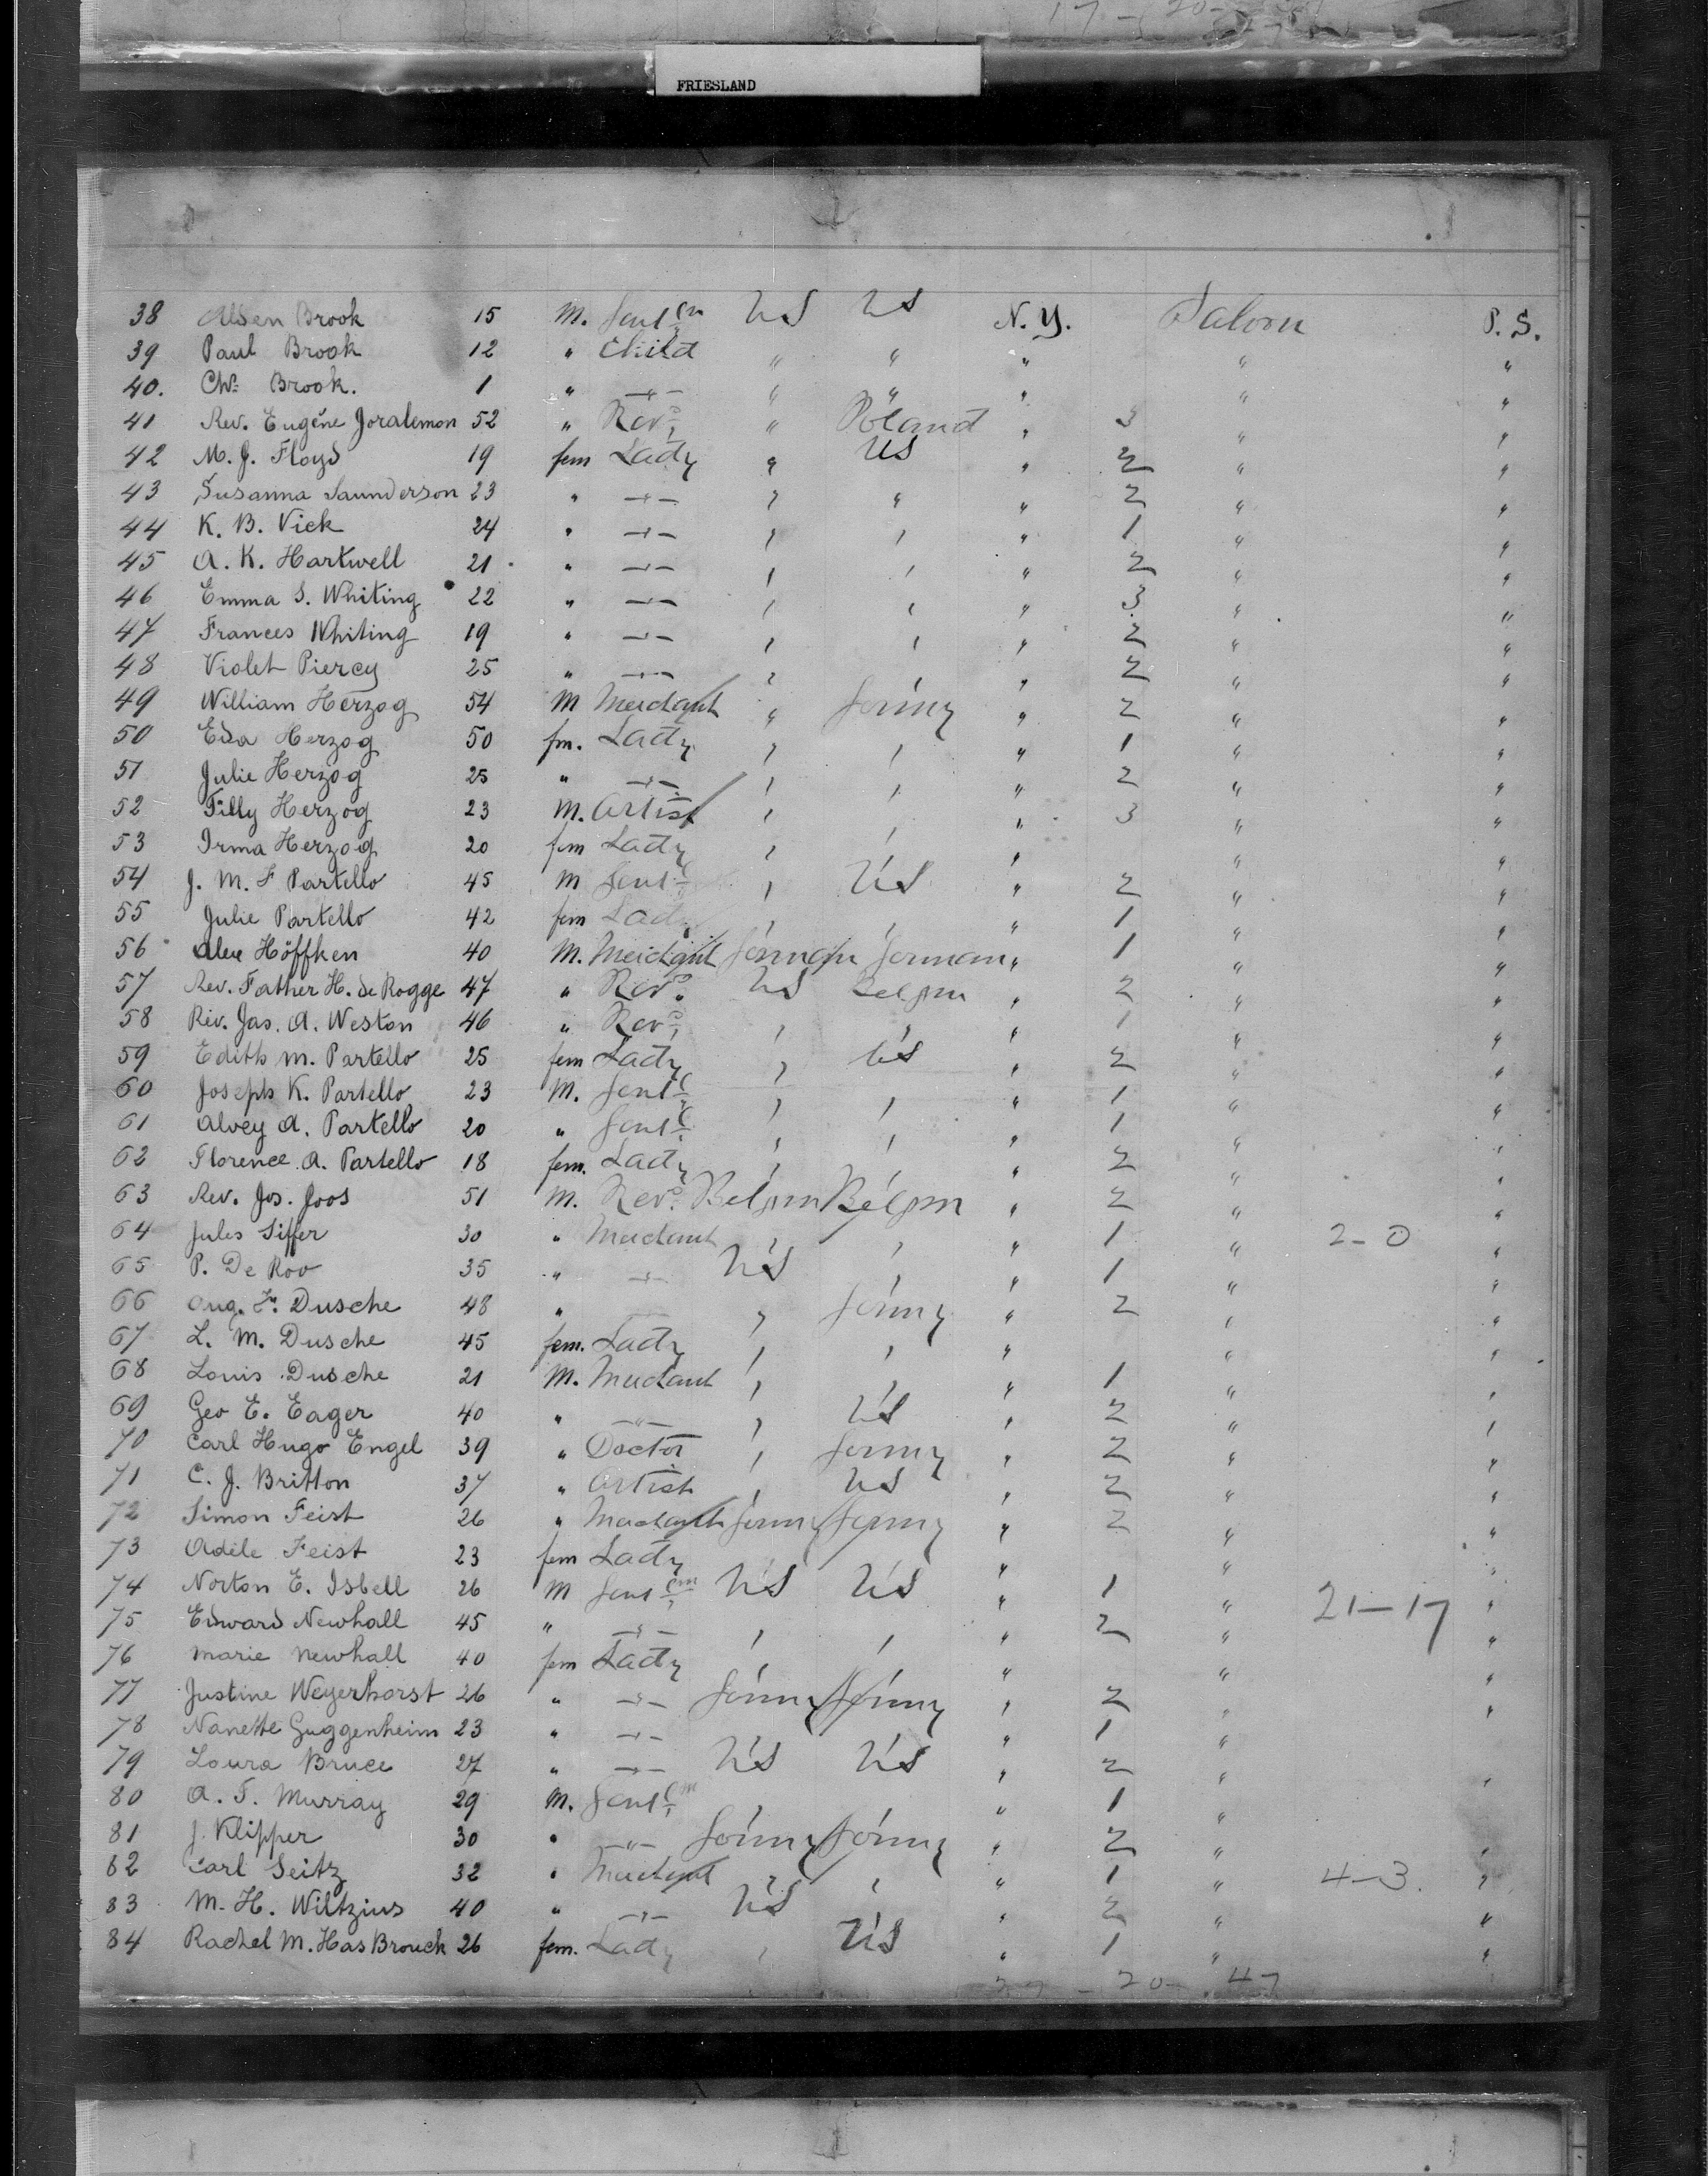 FRIESLAND
38 Alsen Brook 15 M. Gent US US N.Y. Saloon P.S.
39 Paul Brook 12 " Child " " " " "
40. Chs Brook. 1 " —"— " " " " "
41 Rev. Eugéne Joralemon 52 " Revd " Poland " 3 " "
42 M. J. Floyd 19 fem Lady " US " 2 " "
43 Susanna Saunderson 23 " —"— " " " 2 " "
44 K. B. Vick 24 " —"— " " " 1 " "
45 A. K. Hartwell 21 " —"— " " " 2 " "
46 Emma S. Whiting 22 " —"— " " " 3 " "
47 Frances Whiting 19 " —"— " " " 2 " "
48 Violet Piercy 25 " —"— " " " 2 " "
49 William Herzog 54 M Merchant " Germy " 2 " "
50 Eda Herzog 50 fm. Lady " " " 1 " "
51 Julie Herzog 25 " —"— " " " 2 " "
52 Tilly Herzog 23 M. Artist " " " 3 " "
53 Irma Herzog 20 fem Lady " " " " "
54 J. M. F Partello 45 M Gent " US " 2 " "
55 Julie Partello 42 fem Lady " " " 1 " "
56 Alex Höffken 40 M. Merchant German German " 1 " "
57 Rev. Father H. de Rogge 47 " Revd. US Belgm " 2 " "
58 Rev. Jas. A. Weston 46 " Revd " " 1 " "
59 Edith M. Partello 25 fem Lady " US " 2 " "
60 Joseph K. Partello 23 M. Gent " " " 1 " "
61 Alvey A. Partello 20 " Gent " " " 1 " "
62 Florence A. Partello 18 fem. Lady " " " 2 " "
63 Rev. Jos. Joos 51 M. Revd. Belgm Belgm " 2 " "
64 Jules Siffer 30 " Merchant " " " 1 " 2-0 "
65 P. De Roo 35 " —"— US " " 1 " "
66 Aug. Dusche 48 " — " Germy " 2 " "
67 L. M. Dusche 45 fem. Lady " " " " "
68 Louis Dusche 21 M. Merchant " " " 1 " "
69 Geo E. Eager 40 " —"— " US " 2 " "
70 Carl Hugo Engel 39 " Doctor " Germy " 2 " "
71 C. J. Britton 37 " Artist " US " 2 " "
72 Simon Feist 26 " Merchant Germy Germy " 2 " "
73 Adéle Feist 23 fem Lady " " "
74 Norton E. Isbell 26 M Gent US US " 1 " 21-17 "
75 Edward Newhall 45 " —"— " " " 2 " "
76 Marie Newhall 40 fem Lady " " " " "
77 Justine Weyerhorst 26 " —"— Germy Germy " 2 " "
78 Nanette Guggenheim 23 " —"— " 1 "
79 Laura Bruce 27 " —"— US US " 2 " "
80 A. T. Murray 29 M. Gent " " 1 "
81 J. Klipper 30 " —"— Germy Germy " 2 " "
82 Carl Seitz 32 " Merchant " " " 1 " 4-3. "
83 M. H. Wiltzius 40 " —"— US " 2 " "
84 Rachel M. HasBrouck 26 fem. Lady " US " 1 " "
20 47